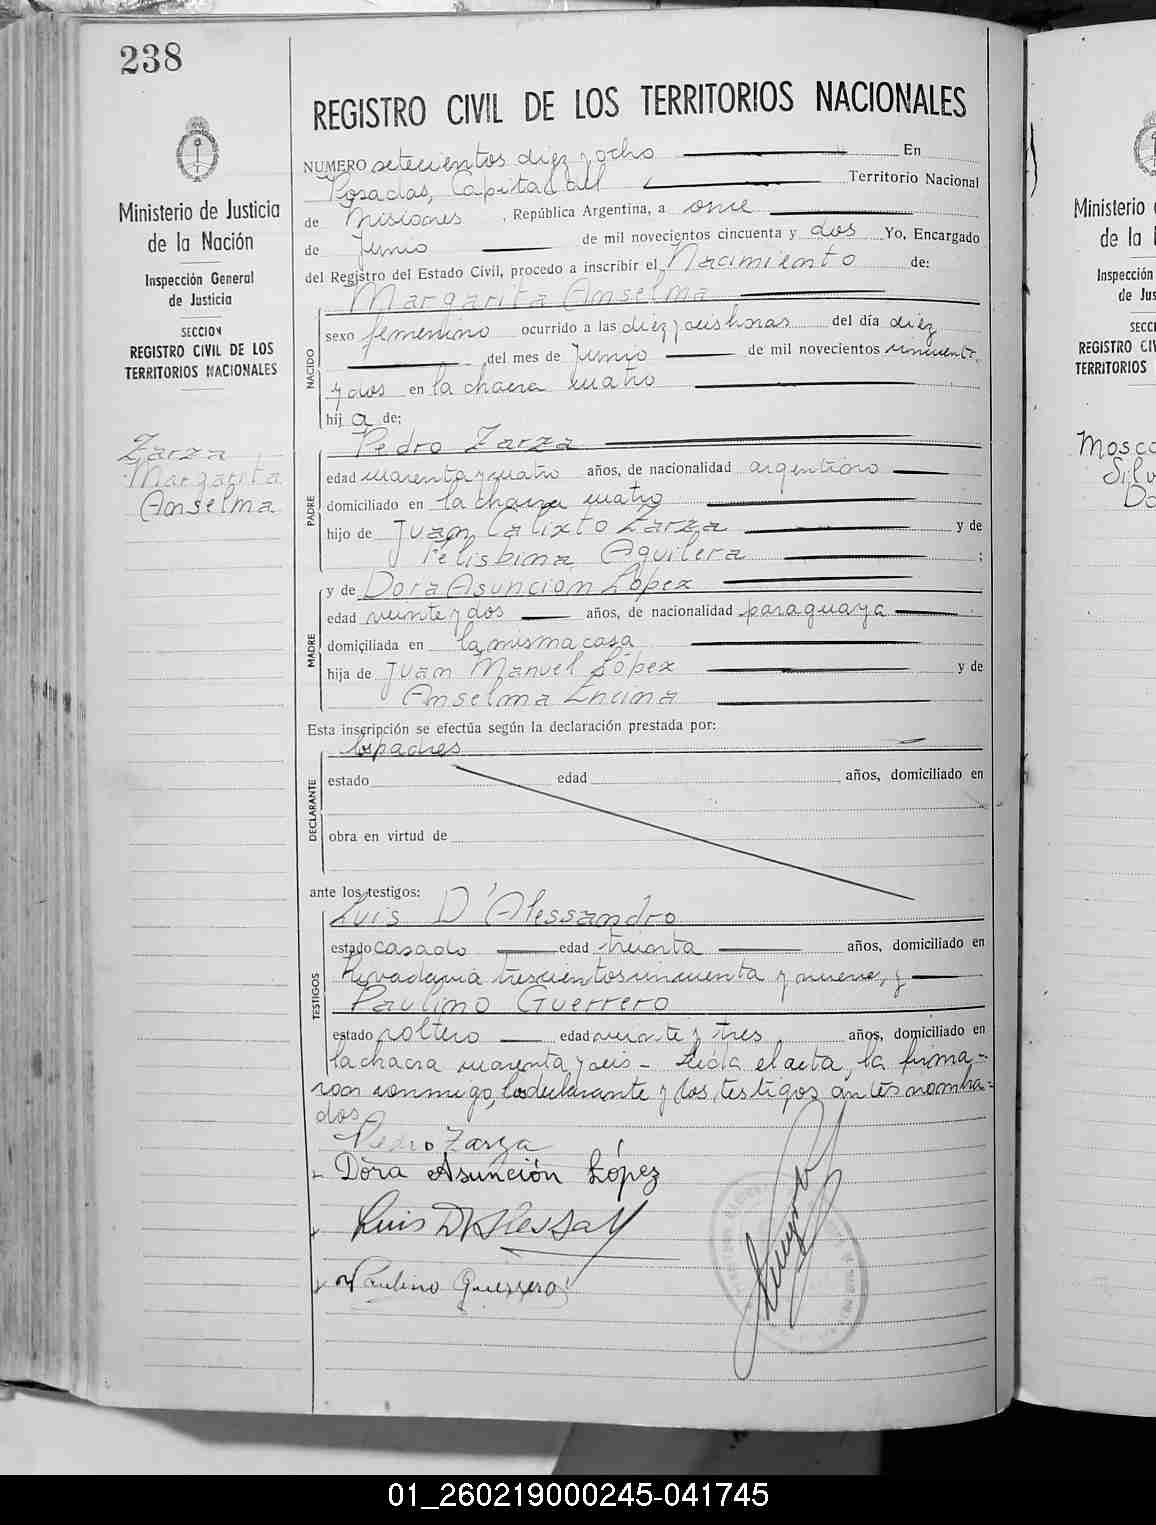 238
REGISTRO CIVIL DE LOS TERRITORIOS NACIONALES
Ministerio de Justicia
de la Nación
Inspección General
de Justicia
SECCION
REGISTRO CIVIL DE LOS
TERRITORIOS NACIONALES
Zarza
Margarita
Anselma
NUMERO setecientos diez y ocho En
Posadas, Capital del Territorio Nacional
de Misiones, República Argentina, a once
de Junio de mil novecientos cincuenta y dos Yo, Encargado
del Registro del Estado Civil, procedo a inscribir el Nacimiento de:
Margarita Anselma
NACIDO
sexo femenino ocurrido a las diez y seis horas del día diez
del mes de Junio de mil novecientos cincuenta
y dos en la chacra cuatro
hij a de:
Pedro Zarza
PADRE
edad cuarenta y cuatro años, de nacionalidad argentino
domiciliado en la chacra cuatro
hijo de Juan Calixto Zarza y de
Felisbina Aguilera ;
y de Dora Asunción López
MADRE
edad veinte y dos años, de nacionalidad paraguaya
domiciliada en la misma casa
hija de Juan Manuel López y de
Anselma Encina
Esta inscripción se efectúa según la declaración prestada por:
los padres
DECLARANTE
estado edad años, domiciliado en
obra en virtud de
ante los testigos:
Luis D'Alessandro
TESTIGOS
estado casado edad treinta años, domiciliado en
Rivadavia trescientos cincuenta y nueve, y
Paulino Guerrero
estado soltero edad veinte y tres años, domiciliado en
la chacra cuarenta y seis - Leida el acta, la firma-
ron conmigo, los declarante y los testigos antes nombra-
dos
Pedro Zarza
Dora Asunción López
Luis D'Alessan
Paulino Guerrero
Ministerio
de la
Inspección
de Jus
SECCI
REGISTRO CIV
TERRITORIOS
Mosco
Silv
Do
01_260219000245-041745